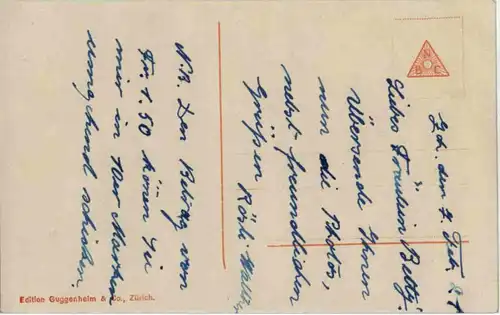 Zch. den 7. Feb. 21
Liebes Fräulein Betty!
Übersende Ihnen
nun die Photos,
nebst freundlichen
Grüßen Rösli
N.B. Den Betrag von
Fr. 1.50 können Sie
mir in 10er Marken
umgehend schicken.
N
B C
Edition Guggenheim & Co., Zürich.